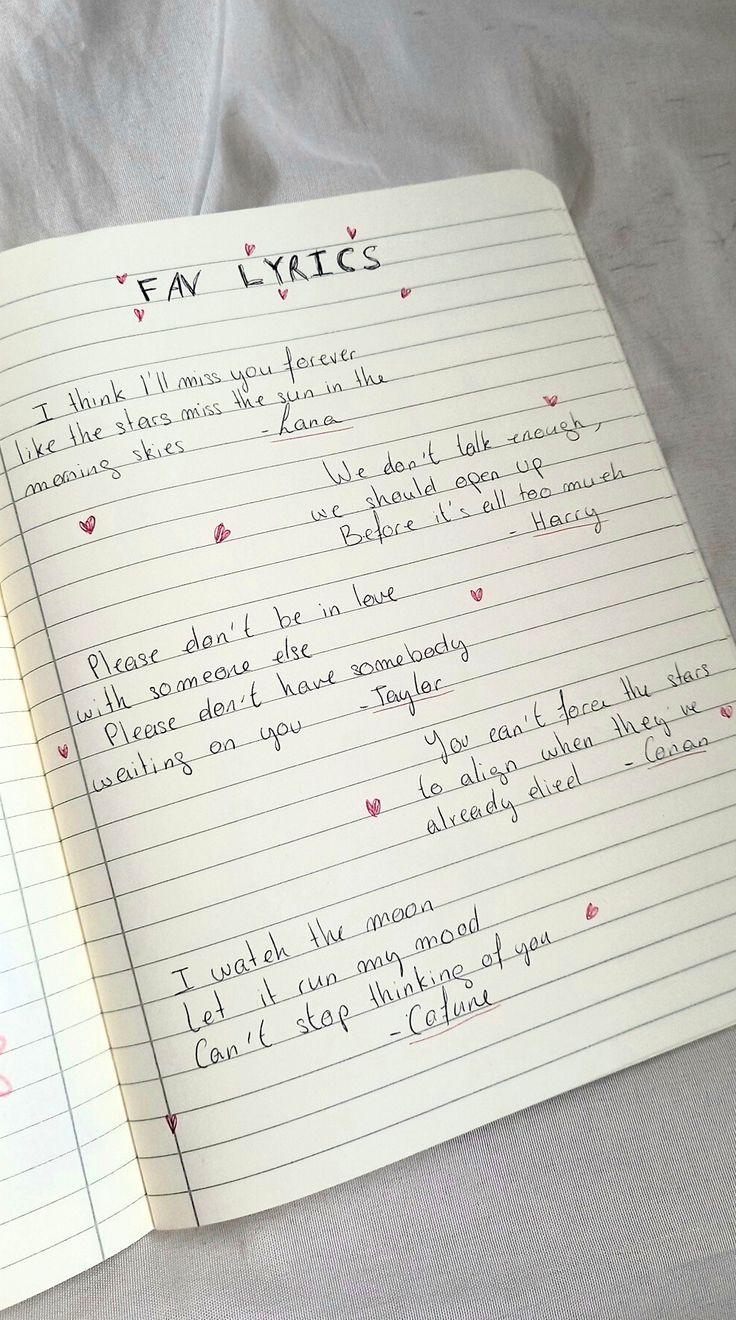 FAV LYRICS
I think I'll miss you forever
like the stars miss the sun in the
morning skies
-Lana
We don't talk enough,
we should open up
Before it's all too much
- Harry
Please don't be in love
with someone else
Please don't have somebody
waiting on you
-Taylor
You can't force the stars
to align when they've
already died
- Conan
I watch the moon
Let it run my mood
Can't stop thinking of you
-Cafune